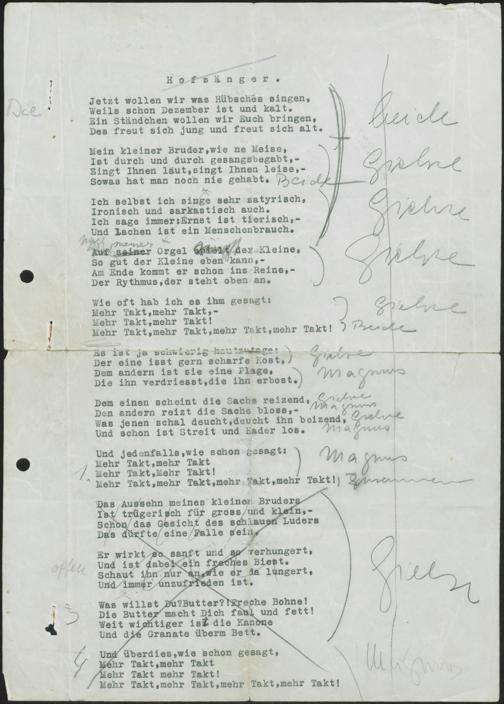 Hofsänger.
Die
Jetzt wollen wir was Hübsches singen,
Weils schon Dezember ist und kalt.
Ein Ständchen wollen wir Euch bringen, beide
Des freut sich jung und freut sich alt.
Mein kleiner Bruder,wie ne Meise,
Ist durch und durch gesangsbegabt,- Giehse
Singt Ihnen laut,singt Ihnen leise,-
Sowas hat man noch nie gehabt. Beide
Ich selbst ich singe sehr satyrisch, Giehse
Ironisch und sarkastisch auch.
Ich sage immer:Ernst ist tierisch,-
Und Lachen ist ein Menschenbrauch.
Auf seiner Orgel der Kleine, Giehse
So gut der Kleine eben kann,-
Am Ende kommt er schon ins Reine,-
Der Rythmus,der steht oben an.
Wie oft hab ich es ihm gesagt:
Mehr Takt,mehr Takt,- Giehse
Mehr Takt,mehr Takt!
Mehr Takt,mehr Takt,mehr Takt,mehr Takt! Beide
Es ist ja schwierig heutzutage:
Der eine isst gern scharfe Kost, Giehse
Dem andern ist sie eine Plage, Magnus
Die ihn verdriesst,die ihn erbost.
Dem einen scheint die Sache reizend, Giehse
Den andern reizt die Sache bloss,- Magnus
Was jenen schal deucht,deucht ihn beizend, Giehse
Und schon ist Streit und Hader los. Magnus
Und jedenfalls,wie schon gesagt: Magnus
Mehr Takt,mehr Takt
1. Mehr Takt,Mehr Takt!
Mehr Takt,mehr Takt,mehr Takt,mehr Takt! Zusammen
Das Aussehn meines kleinen Bruders
Ist trügerisch für gross und klein,-
Schon das Gesicht des schlauen Luders
Das dürfte eine Falle sein.
Er wirkt so sanft und so verhungert,
Und ist dabei ein freches Biest. Giehse
Schaut ihn nur an,wie er da lungert,
Und immer unzufrieden ist.
Was willst Du?Butter?!Freche Bohne!
3 Die Butter macht Dich faul und fett!
Weit wichtiger ist die Kanone
Und die Granate überm Bett.
Und überdies,wie schon gesagt, Magnus
4 Mehr Takt,mehr Takt
Mehr Takt mehr Takt!
Mehr Takt,mehr Takt,mehr Takt,mehr Takt!